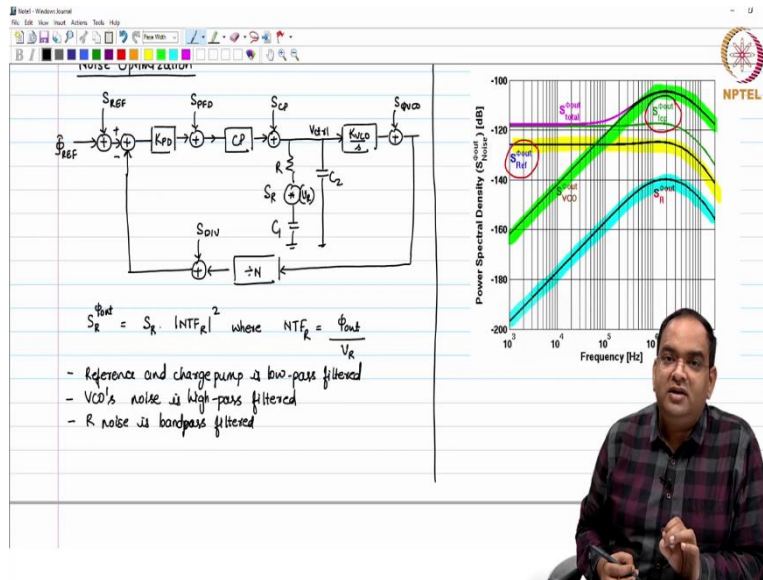 Note1 - Windows Journal
File Edit View Insert Actions Tools Help
Page Width
B I
NPTEL
Noise Optimization
S_REF
S_PFD
S_CP
S_ΦVCO
Φ_REF
+
-
K_PD
CP
Vctrl
K_VCO/s
R
S_R
(V_R)
C_2
C_1
S_DIV
÷N
S_R^Φout = S_R . |NTF_R|^2 where NTF_R = Φout / V_R
- Reference and charge pump is low-pass filtered
- VCO's noise is high-pass filtered
- R noise is bandpass filtered
Power Spectral Density (S_Noise^Φout) [dB]
-100
-120
-140
-160
-180
-200
S_total^Φout
S_Icp^Φout
S_Ref^Φout
S_VCO^Φout
S_R^Φout
10^3 10^4 10^5
Frequency [Hz]